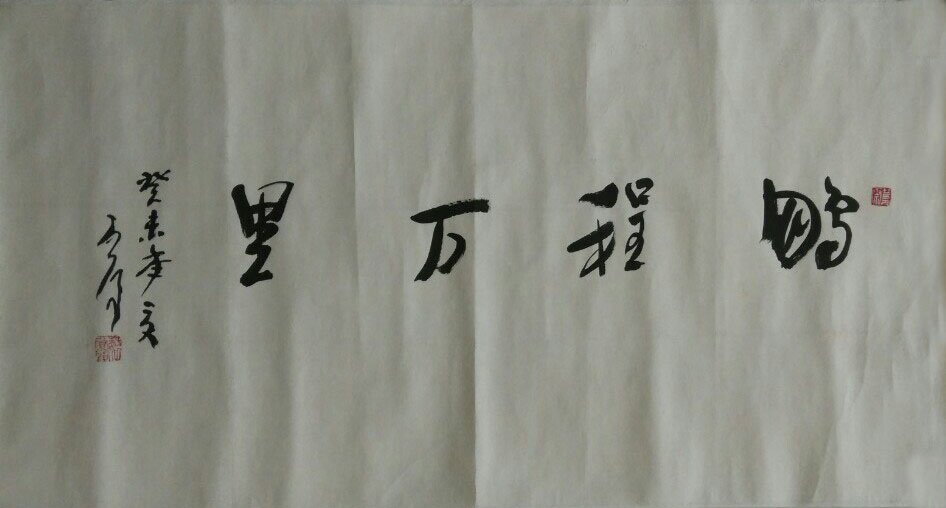 鹏程万里
癸未年